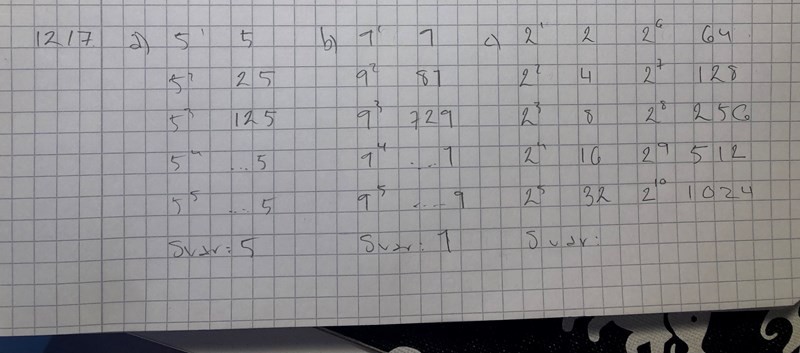 1217 a) 5¹ 5 b) 9¹ 9 c) 2¹ 2 2⁶ 64
5² 25 9² 81 2² 4 2⁷ 128
5³ 125 9³ 729 2³ 8 2⁸ 256
5⁴ ...5 9⁴ ...1 2⁴ 16 2⁹ 512
5⁵ ...5 9⁵ ....9 2⁵ 32 2¹⁰ 1024
Svar: 5 Svar: 1 Svar: